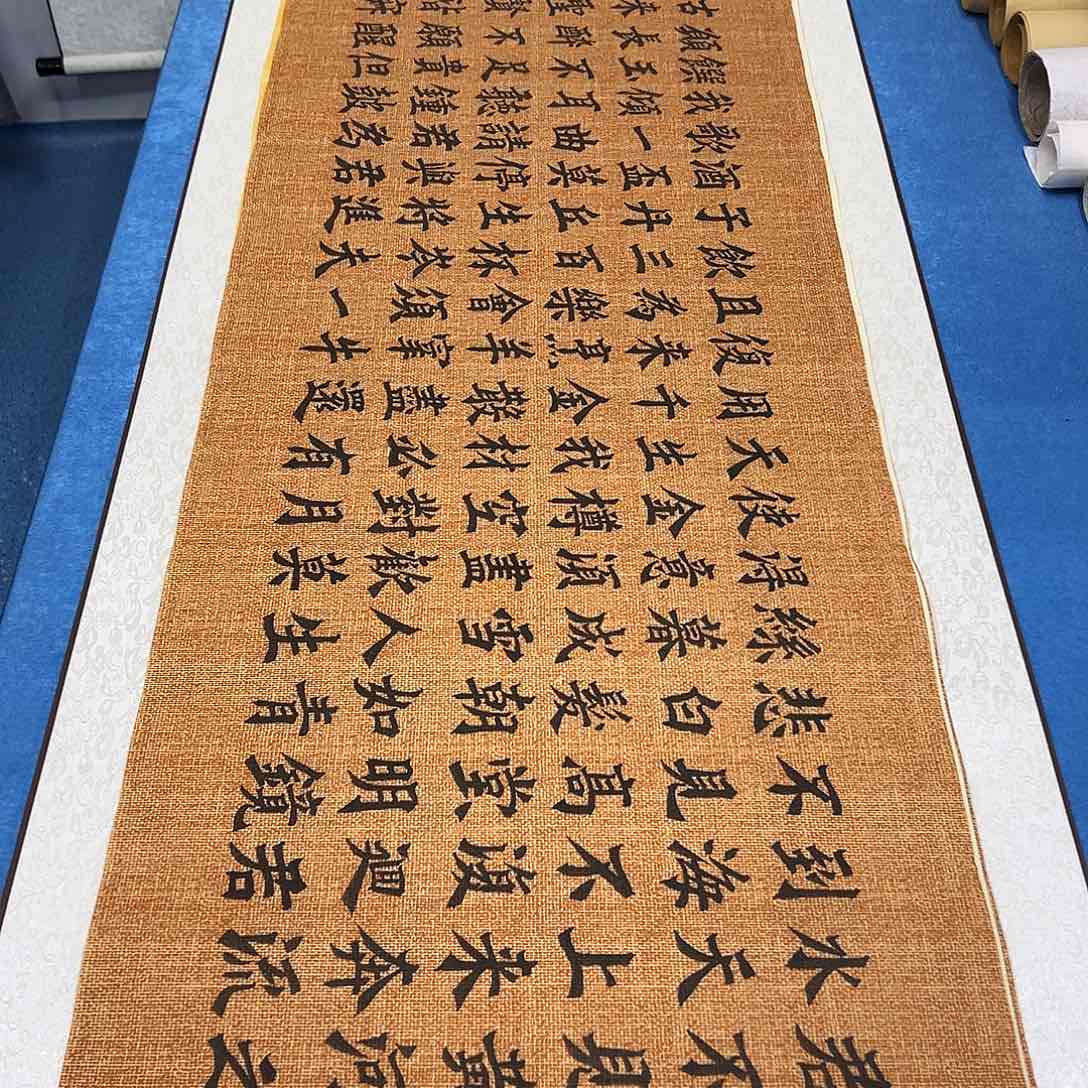 君不見黃河之
水天上来奔流
到海不復迴君
不見高堂明鏡
悲白髮朝如青
絲暮成雪人生
得意須盡歡莫
使金樽空對月
天生我材必有
用千金散盡還
復来烹羊宰牛
且為樂會須一
飲三百杯岑夫
子丹丘生將進
酒盃莫停與君
歌一曲請君為
我傾耳聽鐘鼓
饌玉不足貴但
願長醉不願醒
古来聖賢皆